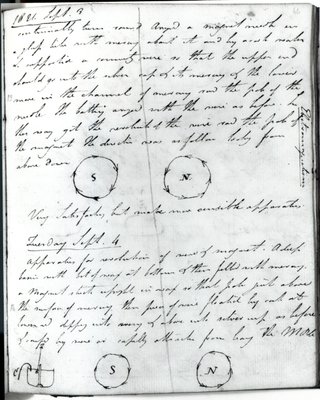 1821 Sept. 3
continually turn round. Arrged a magnet needle in
a glass tube with mercury about it and by a cork, water
&c supported a connecting wire so that the upper end
should go into the silver cup and its mercury and the lower
move in the channel of mercury round the pole of the
needle. The battery arranged with the wire as before. In
this way got the revolution of the wire round the pole of
the magnet. The direction was as follow looking from
above down
S N
Very Satisfactory, but make more sensible apparatus.
Tuesday Sept. 4
Apparatus for revolution of wire &c magnet. A deep
basin with bit of wax at bottom &c then filled with mercury
a Magnet stuck upright in wax so that pole just above
the surface of mercury then piece of wire floated by cork at
lower end dipping into mercury & above into silver cup as before
S N